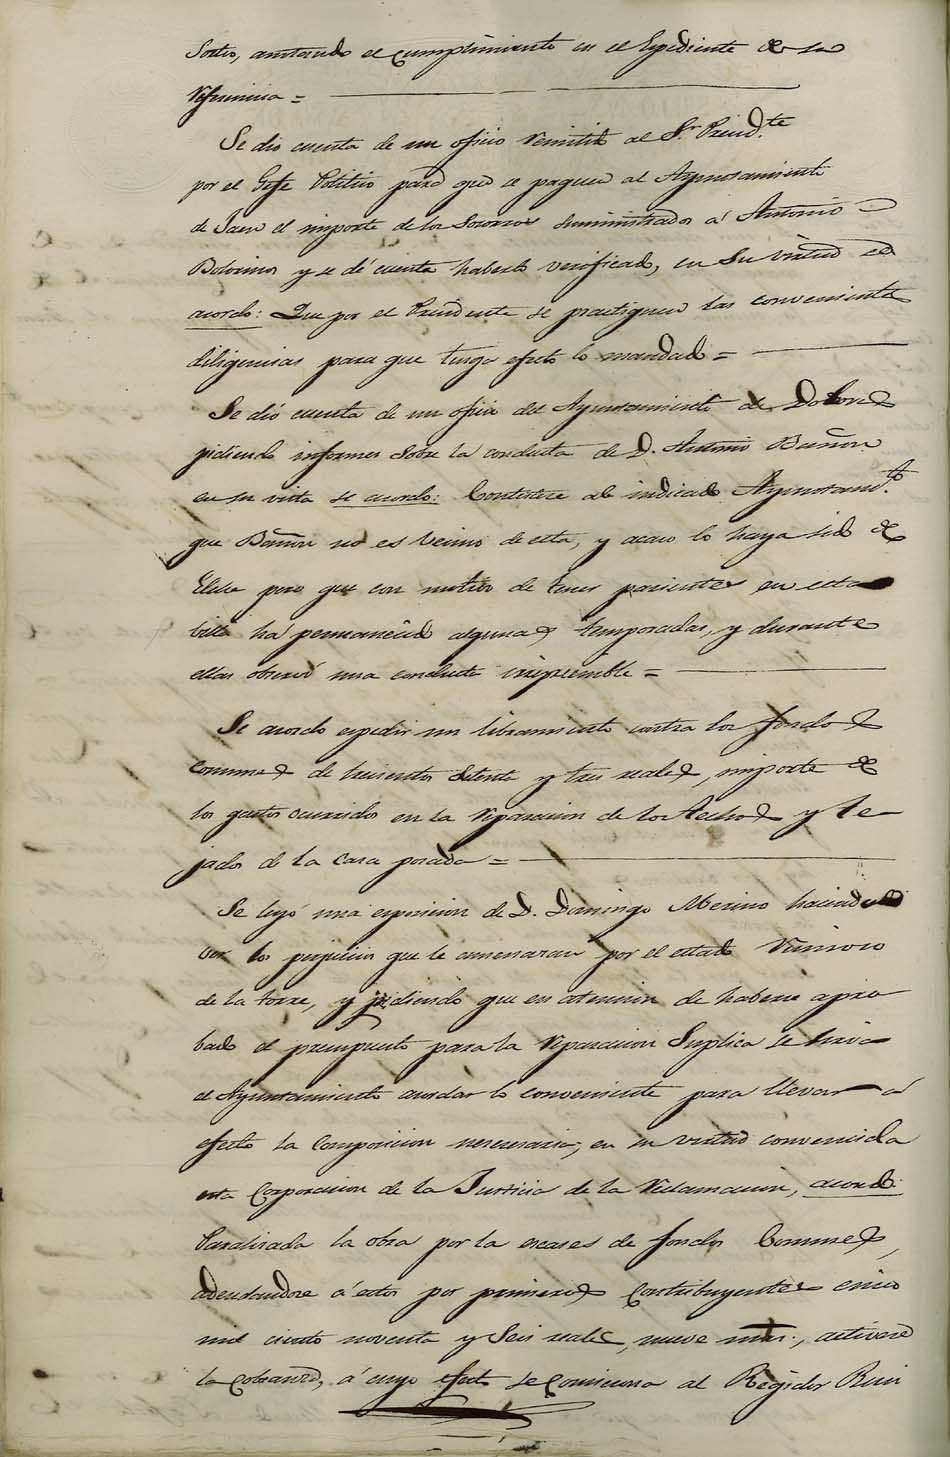 Sorteo, anotando el cumplimiento en el Espediente de la
referencia =
Se dio cuenta de un oficio remitido al Sr. Presid.te
por el Gefe Politico para que se paguen al Ayuntamiento
de Jaen el importe de los Socorros suministrados á Antonio
y se dé cuenta haberlo verificado, en su virtud se
acordo: Que por el Presidente se practiquen las convenientes
diligencias para que tenga efecto lo mandado =
Se dió cuenta de un oficio del Ayuntamiento de Dolores
pidiendo informes sobre la conducta de D. Antonio Bañon
en su vista se acordo: Contestese al indicado Ayuntamto.
que Bañon no es vecino de esta, y acaso lo haya sido de
Elche pero que con motivo de tener parientes en esta
villa ha permanecido algunas temporadas, y durante
ellas observó una conducta irreprensible =
Se acordo espedir un libramiento contra los fondos
comunes de trescientos setenta y tres reales, importe de
los gastos ocurridos en la reparacion de los techos y te-
jados de la casa posada =
Se leyó una esposicion de D. Domingo Merino haciendo
ver los perjuicios que le amenazan por el estado ruinoso
de la torre, y pidiendo que en atencion de haberse apro
bado el presupuesto para la reparacion Suplica se sirva
el Ayuntamiento acordar lo conveniente para llevar á
efecto la composicion necesaria; en su virtud convencida
esta Corporacion de la Justicia de la reclamacion, acordó:
Paralizada la obra por la escases de fondos Comunes,
adeudandose á estos por primeros Contribuyentes cinco
mil ciento noventa y seis reales, nueve mrs., activese
la cobranza, á cuyo efecto se comisiona al Regidor Ruiz